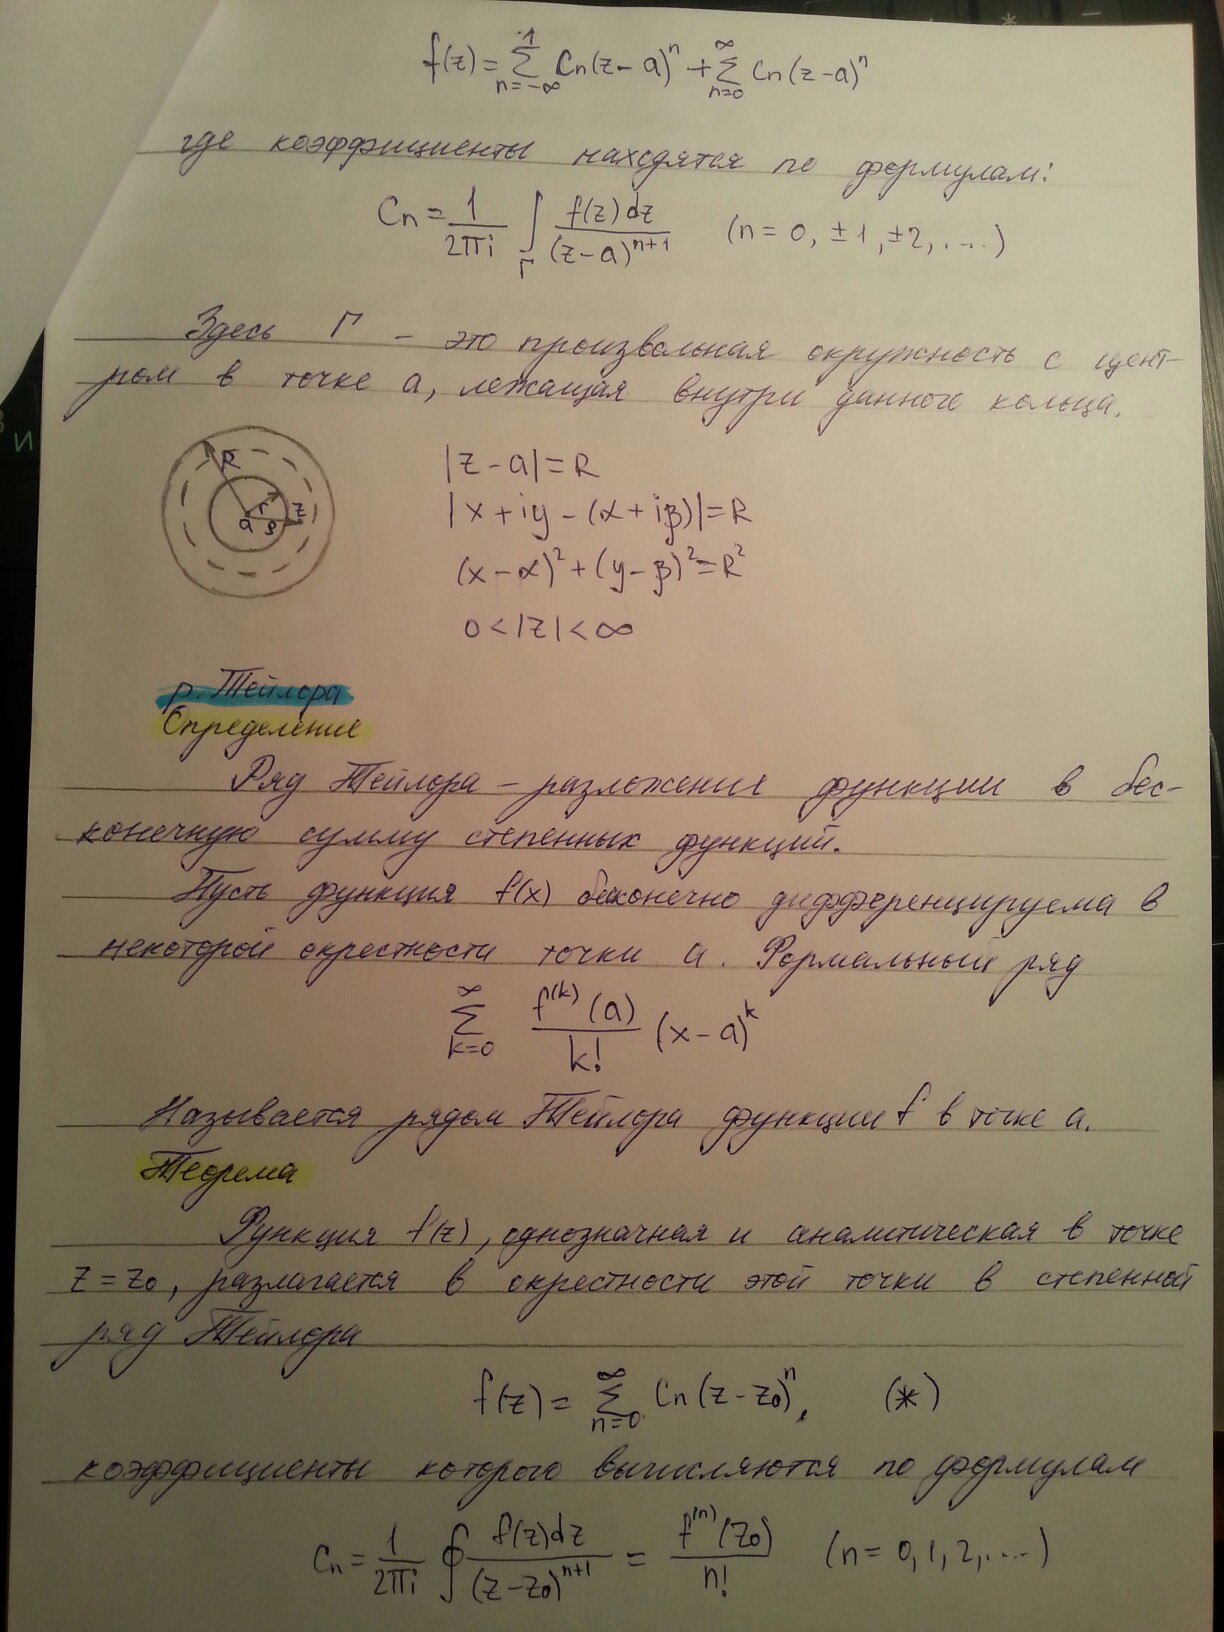 f(z) = ∑_{n=-∞}^{-1} Cn(z-a)^n + ∑_{n=0}^{∞} Cn(z-a)^n
где коэффициенты находятся по формулам:
Cn = 1/(2πi) ∫_Γ f(z)dz/(z-a)^{n+1} (n = 0, ±1, ±2, ....)
Здесь Γ - это произвольная окружность с цент-
ром в точке a, лежащая внутри данного кольца.
R
r
z
a
ρ
|z - a| = R
|x + iy - (α + iβ)| = R
(x - α)² + (y - β)² = R²
0 < |z| < ∞
р. Тейлора
Определение
Ряд Тейлора - разложение функции в бес-
конечную сумму степенных функций.
Пусть функция f(x) бесконечно дифференцируема в
некоторой окрестности точки a. Формальный ряд
∑_{k=0}^{∞} f^{(k)}(a)/k! (x-a)^k
Называется рядом Тейлора функции f в точке a.
Теорема
Функция f(z), однозначная и аналитическая в точке
z = z₀, разлагается в окрестности этой точки в степенной
ряд Тейлора
f(z) = ∑_{n=0}^{∞} Cn(z-z₀)^n, (*)
коэффициенты которого вычисляются по формулам
Cn = 1/(2πi) ∮ f(z)dz/(z-z₀)^{n+1} = f^{(n)}(z₀)/n! (n = 0, 1, 2, ....)